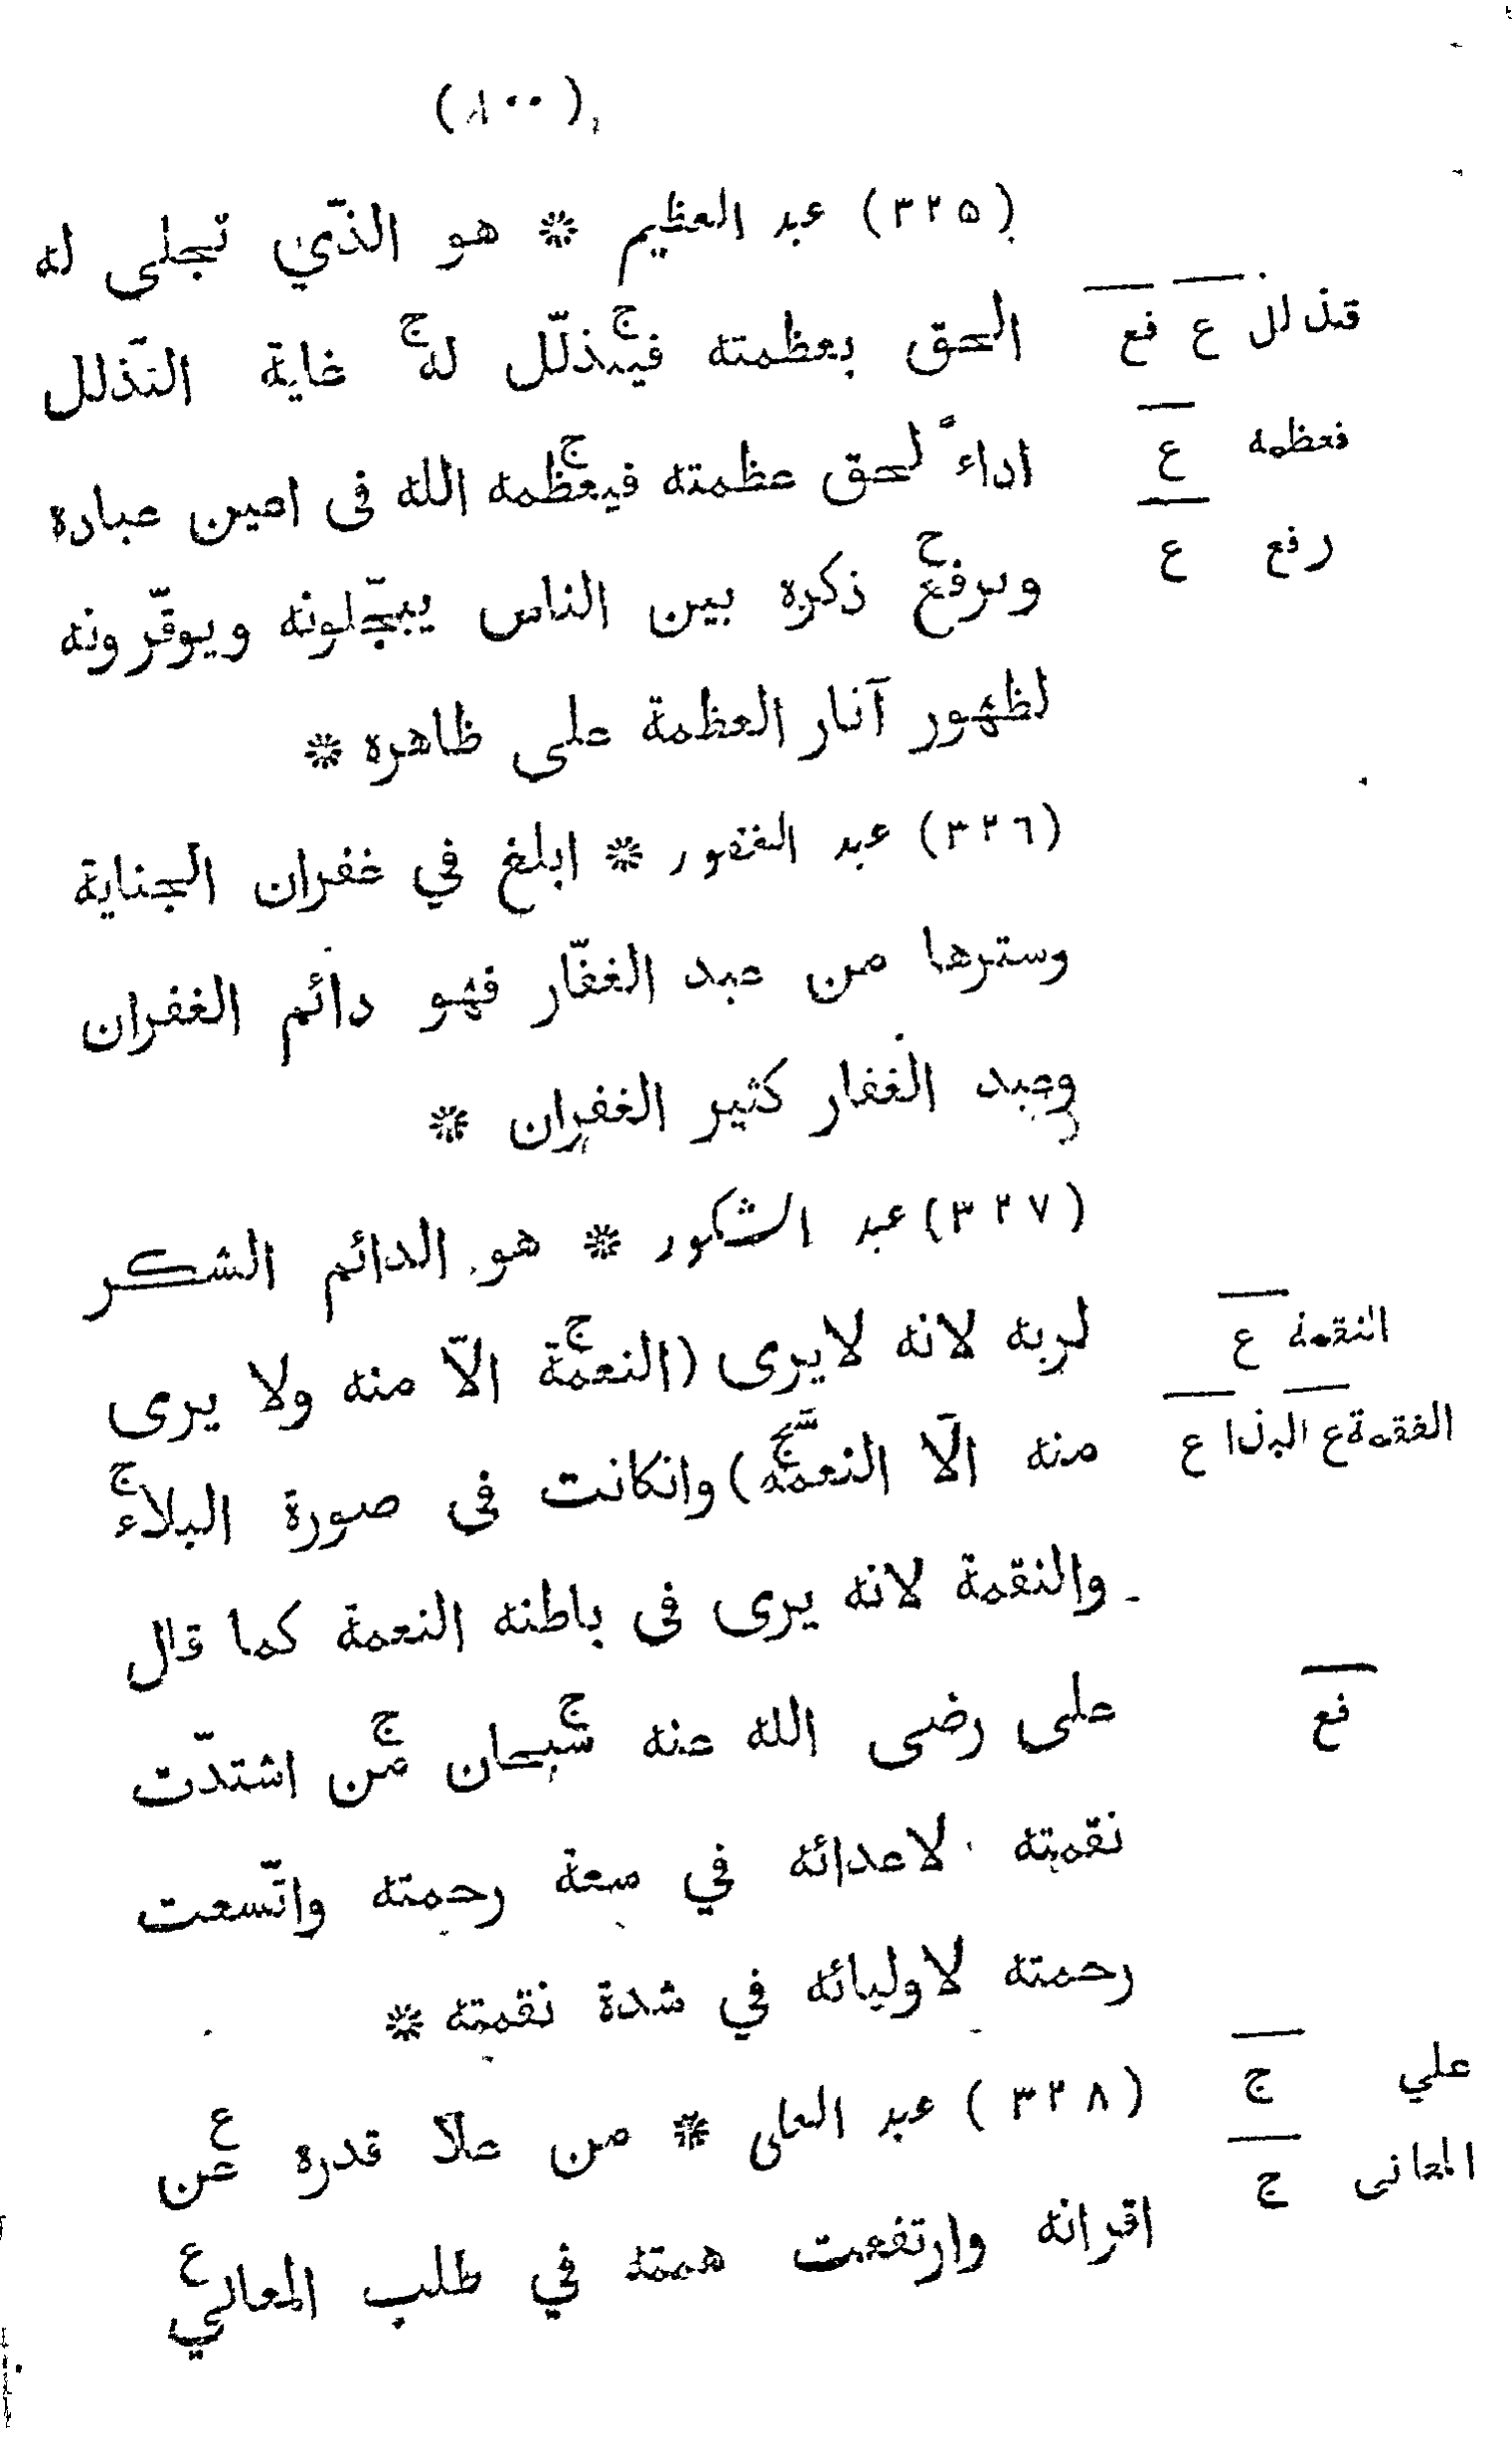 (١٠٠)
(٣٢٥) عبد العظيم * هو الذّي تجلى له
الحق بعظمته فيتذلّل له غاية التذّلل
قتذلل ع فع
اداءً لحق عظمته فيعظمه الله فى اعين عباده
فعظمه ع
ويرفع ذكره بين الناس يبجّلونه ويوقّرونه
رفع ع
لظهور آثار العظمة على ظاهره *
(٣٢٦) عبد الغفور * ابلغ في غفران الجناية
وسترها من عبد الغفّار فهو دائم الغفران
وعبد الغفار كثير الغفران *
(٣٢٧) عبد الشكور * هو الدائم الشكر
لربه لانه لايرى (النعمة الاّ منه ولا يرى
النقمة ع
منه الّا النعمّه) وانكانت فى صورة البلاء
الفقمة ع البلاا ع
والنقمة لانه يرى فى باطنه النعمة كما قال
على رضى الله عنه سبحان من اشتدّت
فع
نقمته لاعدائه في سعة رحمته واتّسعت
رحمته لاوليائه في شدة نقمته *
(٣٢٨) عبد العلى * من علاّ قدره عن
علي ج
اقرانه وارتفعت همته في طلب المعالي
المعانى ج